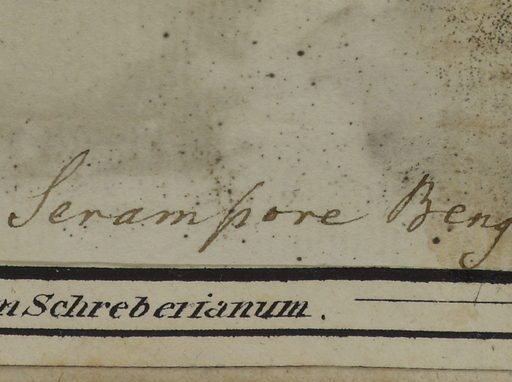 Serampore Beng
m Schreberianum.